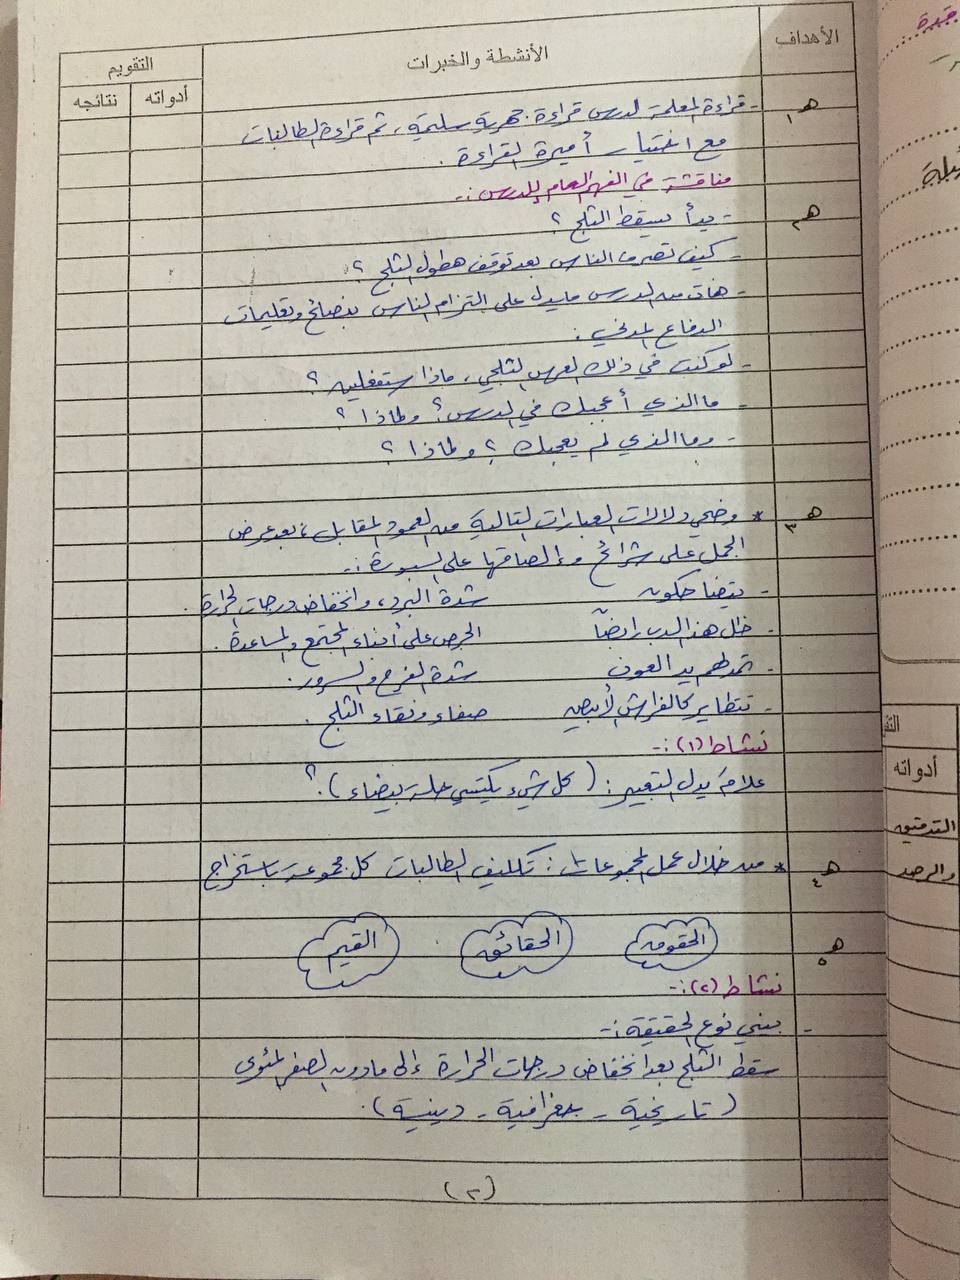 الأهداف الأنشطة والخبرات التقويم
أدواته نتائجه
هـ١ - قراءة المعلمة لدرس قراءة جهرية سليمة، ثم قراءة الطالبات
مع اختيار أميرة القراءة.
مناقشة في الفهم العام للدرس :-
هـ٢ - بدأ يسقط الثلج ؟
- كيف تصرف الناس بعد توقف هطول الثلج ؟
- هات من الدرس ما يدل على التزام الناس بنصائح وتعليمات
الدفاع المدني :
- لو كنت في ذلك العرس الثلجي، ماذا ستفعلين ؟
- ما الذي أعجبك في الدرس؟ ولماذا ؟
- وما الذي لم يعجبك ؟ ولماذا ؟
هـ٣ * وضحي دلالات العبارات التالية من العمود المقابل، بعد عرض
الجمل على شرائح وإلصاقها على السبورة :-
- يتضاحكون شدة البرد، وانخفاض درجات الحرارة.
- ظل هذا الدب رابضاً الحرص على أبناء المجتمع والمساعدة.
- تمد لهم يد العون شدة الفرح والسرور.
- تتطاير كالفراش الأبيض صفاء ونقاء الثلج.
نشاط (١) :-
علامَ يدل التعبير : ( كل شيء يكتسي حلة بيضاء ) ؟
هـ٤ * من خلال عمل المجموعات : تكليف الطالبات كل مجموعة باستخراج
هـ٥ الحقوق الحقائق القيم
نشاط (٢) :-
- بيني نوع الحقيقة :-
سقط الثلج بعد انخفاض درجات الحرارة إلى ما دون الصفر المئوي
( تاريخية - جغرافية - دينية ).
(٢)
أدواته
التدقيق
والرصد